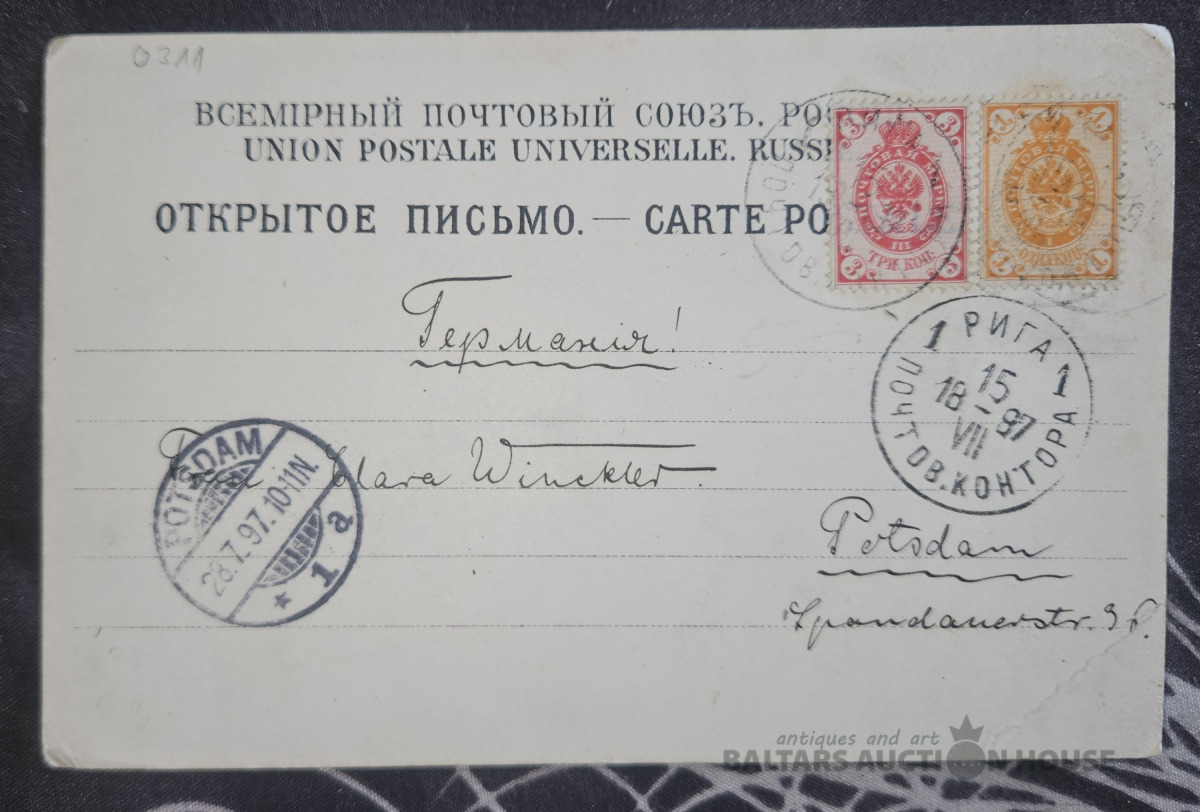 0311
ВСЕМІРНЫЙ ПОЧТОВЫЙ СОЮЗЪ. РОС
UNION POSTALE UNIVERSELLE. RUSSI
ОТКРЫТОЕ ПИСЬМО. — CARTE PO
3 3
ПОЧТОВАЯ МАРКА
III
ТРИ КОП.
3 3
1 1
ПОЧТОВАЯ МАРКА
I
ОДНА КОП.
1 1
Германія!
1 РИГА 1
15
18 - 97
VII
ПОЧТОВ. КОНТОРА
POTSDAM
28.7.97.10-11N.
* 1 a
Clara Winckler.
Potsdam
Spandauerstr.
antiques and art
BALTARS AUCTION HOUSE